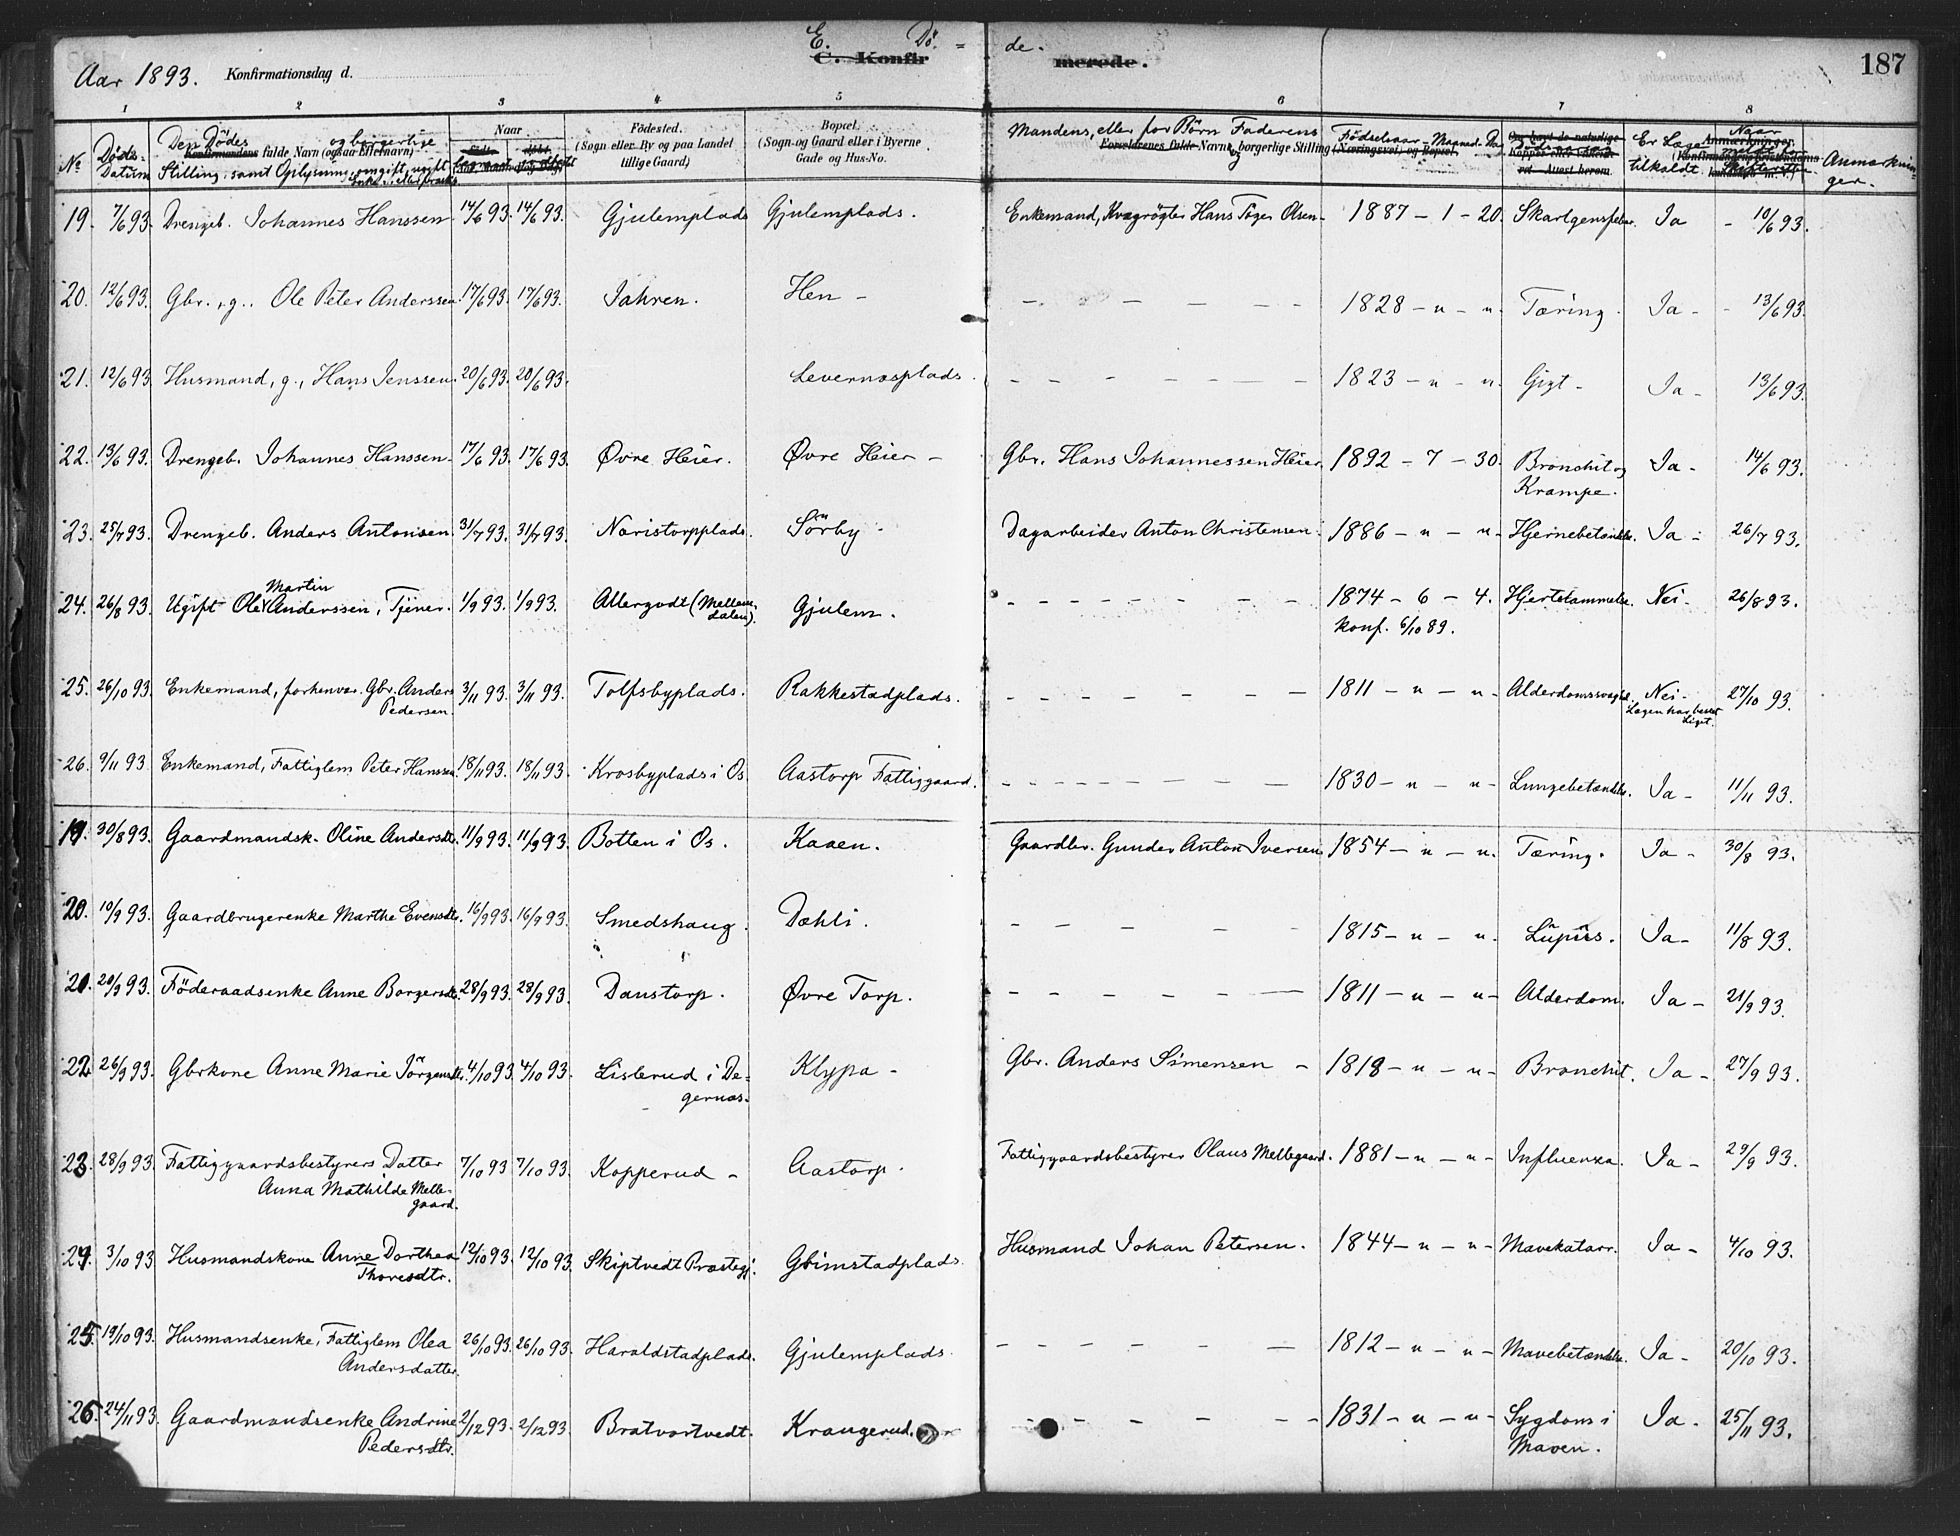 E. Dö- de.
C. Konfirmerede. 187
Aar 1893. Konfirmationsdag d.
1 2 3 4 5 6 7 8
No. Döds-Datum Den Dödes fulde Navn (ogsaa Efternavn) og borgerlige Stilling, samt Oplysning, om gift, ugift Naar Födested. (Sogn eller By og paa Landet tillige Gaard) Bopæl. (Sogn og Gaard eller i Byerne Gade og Hus-No. Mandens, eller for Börn Faderens Navn og borgerlige Stilling Födselsaar, Maaned Er Læge tilkaldt Naar Anmærkninger.
19. 7/6 93. Drengeb. Johannes Hanssen 14/6 93. 14/6 93. Gjulemplads Gjulemplads. Enkemand, Kvægrögter Hans Olsen - 1887 - 1 - 20. Ja - 10/6 93.
20. 12/6 93. Gbr., g., Ole Peter Anderssen. 17/6 93. 17/6 93. Jahren. Hen - - - - - - 1828 - " - ". Tæring. Ja - - 13/6 93.
21. 12/6 93. Husmand, g., Hans Jenssen. 20/6 93. 20/6 93. Levernæsplads. - - - - - - 1823 - " - ". Gigt - Ja - 13/6 93.
22. 13/6 93. Drengeb. Johannes Hanssen - 17/6 93. 17/6 93. Øvre Heier. Øvre Heier - Gbr. Hans Johannessen Heier. 1892 - 7 - 30. Bronchit og Ja - 14/6 93.
Krampe.
23. 25/7 93. Drengeb. Anders Antonsen. 31/7 93. 31/7 93. Naristorpplads. Sörby - Dagarbeider Anton Christensen. 1886 - " - " - Hjernebetændelse. Ja - 26/7 93.
Martin
24. 26/8 93. Ugift Ole Anderssen, Tjener. 1/9 93. 1/9 93. Allergodt (Mellem- Gjulem. - - - - - - - 1874 - 6 - 4. Hjertelammelse. Nei - 26/8 93.
dalen). Konf. 6/10 89.
25. 26/10 93. Enkemand, forhenvær. Gbr. Anders 3/11 93. 3/11 93. Tolfsbyplads. Rakkestadplads. - - - - - - - 1811 - " - " - Alderdomssvaghed. Nei - 27/10 93.
Pedersen. Lægen har beset
Liget.
26. 9/11 93. Enkemand, Fattiglem Peter Hanssen. 18/11 93. 18/11 93. Krosbyplads i Os Aastorp Fattiggaard. - - - - - - - - 1830 - " - " - Lungebetændelse. Ja - 11/11 93.
19. 30/8 93. Gaardmandsk. Oline Andersdtr. 11/9 93. 11/9 93. Botten i Os. Kaaen. Gaardbr. Gunder Anton Iversen. 1854 - " - ". Tæring. Ja - 30/8 93.
20. 10/9 93. Gaardbrugerenke Marthe Evensdtr. 16/9 93. 16/9 93. Smedshaug. Dæhli. - - - - - 1815 - " - ". Lupus. Ja - 11/8 93.
21. 20/9 93. Föderaadsenke Anne Borgersdtr. 28/9 93. 28/9 93. Danstorp. Øvre Torp. - - - - - - 1811 - " - " - Alderdom. Ja - 21/9 93.
22 26/9 93. Gbrkone Anne Marie Jörgensdtr. 4/10 93. 4/10 93. Listerud i De- Klypa - Gbr. Anders Simensen - 1818 - " - " - Bronchit. Ja - 27/9 93.
gernæs.
23. 28/9 93. Fattiggaardsbestyrers Datter 7/10 93 7/10 93. Kopperud - Aastorp. Fattiggaardsbestyrer Olaus Mellegaard. 1881 - " - " - Influenza. Ja - 29/9 93.
Anna Mathilde Melle-
gaard.
24. 3/10 93 Husmandskone Anne Dorthea 12/10 93. 12/10 93. Skiptvedt Præstegj. Grimstadplads. Husmand Johan Petersen. 1844 - " - " - Mavekatarr. Ja - 4/10 93.
Thoresdtr.
25. 19/10 93. Husmandsenke, Fattiglem Olea 26/10 93. 26/10 93. Haraldstadplads. Gjulemplads. - - - - - - 1812 - " - " - Mavebetændelse. Ja - 20/10 93.
Andersdatter.
26. 24/11 93. Gaardmandsenke Andrine 2/12 93. 2/12 93. Bratvortvedt. Krangerud. - - - - - - 1831 - " - " - Sygdom i Ja - 25/11 93.
Pedersdtr. Maven.